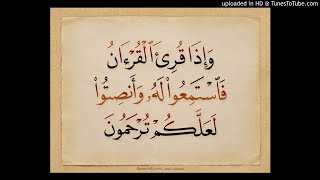 uploaded in HD @ TunesToTube.com
وَإِذَا قُرِئَ ٱلۡقُرۡءَانُ
فَٱسۡتَمِعُواْ لَهُۥ وَأَنصِتُواْ
لَعَلَّكُمۡ تُرۡحَمُونَ